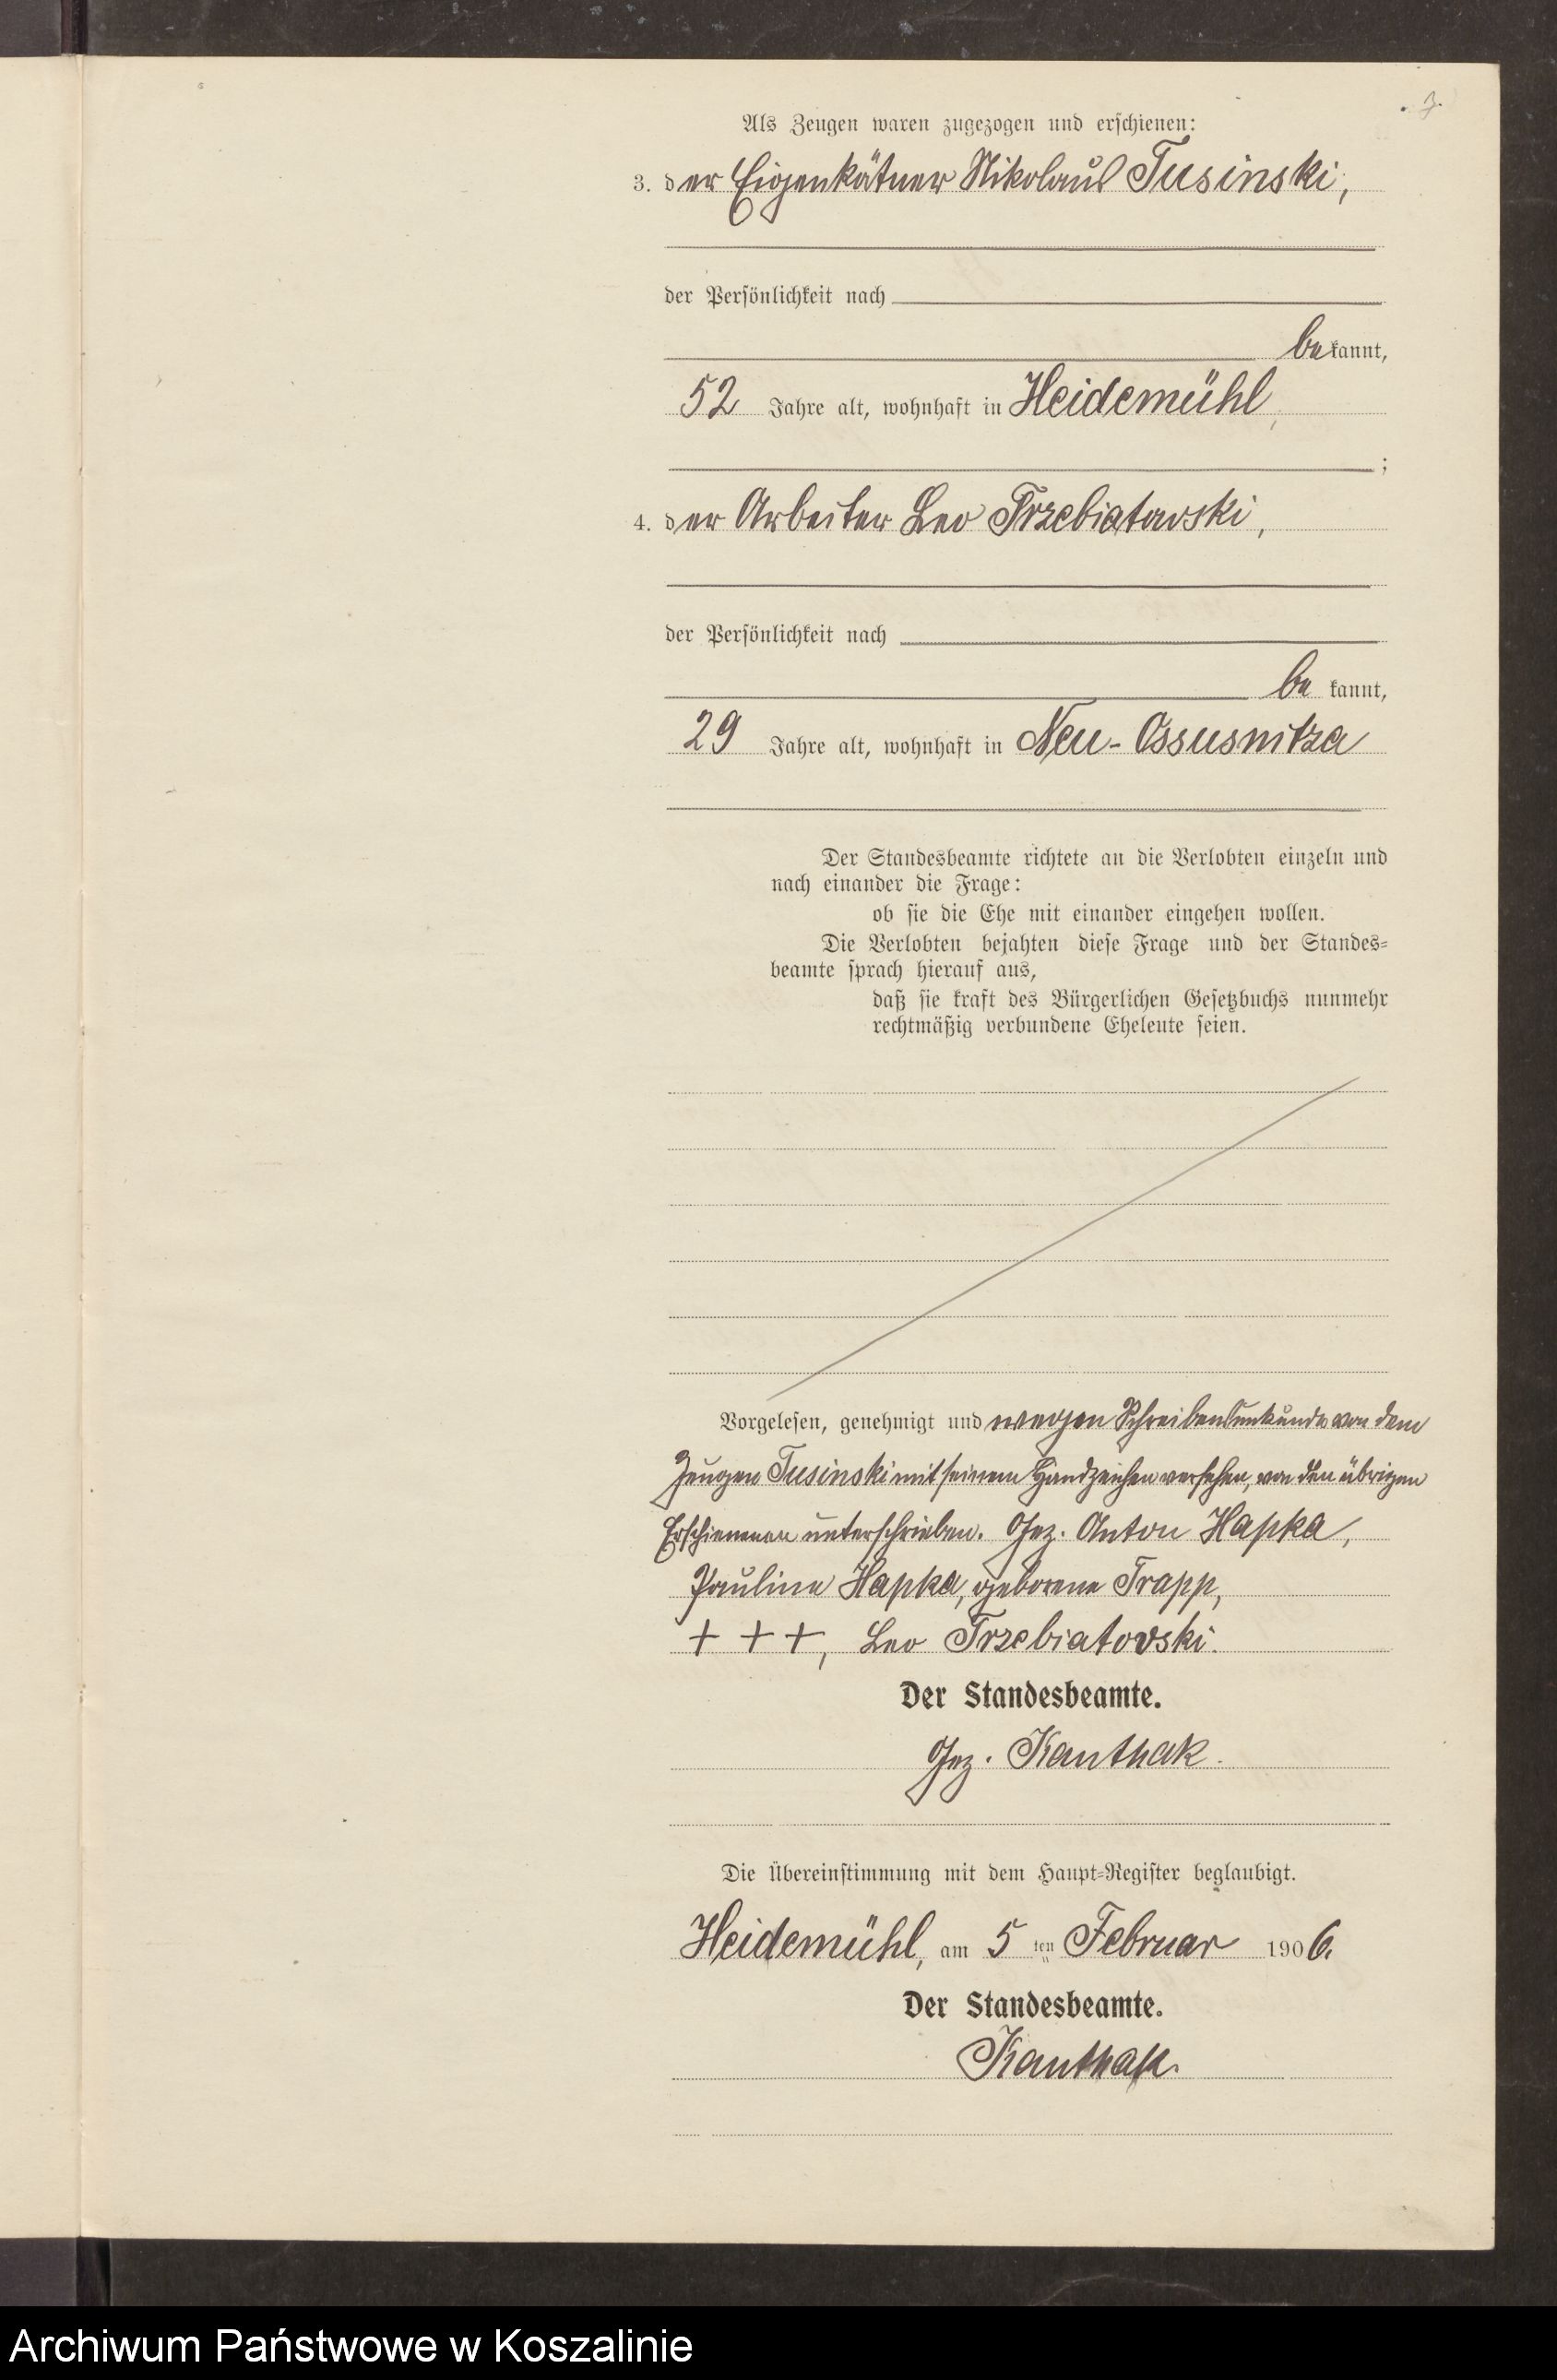 3.
Als Zeugen waren zugezogen und erschienen:
3. der Eigenkätner Nikolaus Tusinski,
der Persönlichkeit nach
bekannt,
52 Jahre alt, wohnhaft in Heidemühl,
;
4. der Arbeiter Leo Trzebiatovski,
der Persönlichkeit nach
be kannt,
29 Jahre alt, wohnhaft in Neu-Ossusnitza
Der Standesbeamte richtete an die Verlobten einzeln und
nach einander die Frage:
ob sie die Ehe mit einander eingehen wollen.
Die Verlobten bejahten diese Frage und der Standes=
beamte sprach hierauf aus,
daß sie kraft des Bürgerlichen Gesetzbuchs nunmehr
rechtmäßig verbundene Eheleute seien.
Vorgelesen, genehmigt und wegen Schreibensunkunde von dem
Zeugen Tusinski mit seinem Handzeichen versehen, von den übrigen
Erschienenen unterschrieben. Gez. Anton Hapka,
Pauline Hapka, geborene Trapp,
+ + +, Leo Trzebiatovski.
Der Standesbeamte.
Gez. Kanthak.
Die Übereinstimmung mit dem Haupt=Register beglaubigt.
Heidemühl, am 5 ten Februar 1906.
Der Standesbeamte.
Kanthak.
Archiwum Państwowe w Koszalinie